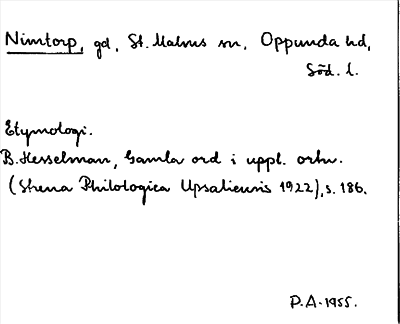 Nimtorp, gd, St. Malms sn, Oppunda hd,
Söd. l.
Etymologi.
B. Hesselman, Gamla ord i uppl. ortn.
(Strena Philologica Upsaliensis 1922), s. 186.
P.A. 1955.